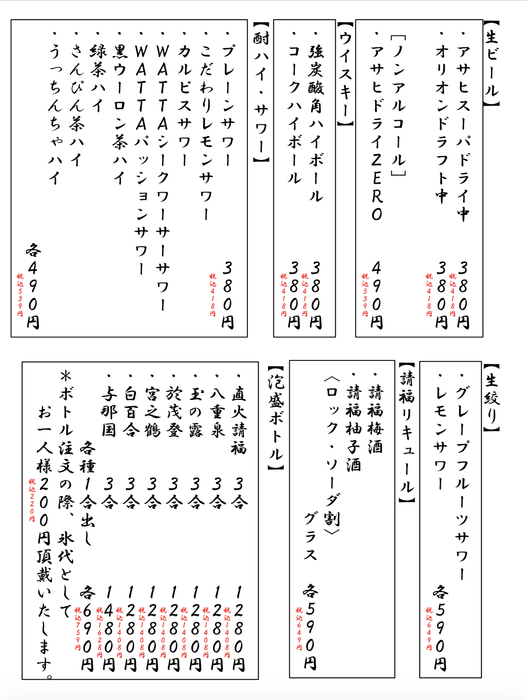 【生ビール】
・アサヒスーパドライ中 380円
税込418円
・オリオンドラフト中 380円
税込418円
[ノンアルコール]
・アサヒドライZERO 490円
税込539円
【ウイスキー】
・強炭酸角ハイボール 380円
税込418円
・コークハイボール 380円
税込418円
【酎ハイ・サワー】
・プレーンサワー 380円
税込418円
・こだわりレモンサワー
・カルピスサワー
・WATTAシークワーサーサワー
・WATTAパッションサワー
・黒ウーロン茶ハイ
・緑茶ハイ
・さんぴん茶ハイ
・うっちんちゃハイ
各490円
税込539円
【生絞り】
・グレープフルーツサワー
・レモンサワー 各590円
税込649円
【請福リキュール】
・請福梅酒
・請福柚子酒
〈ロック・ソーダ割〉
グラス 各590円
税込649円
【泡盛ボトル】
・直火請福 3合 1280円
税込1408円
・八重泉 3合 1280円
税込1408円
・玉の露 3合 1280円
税込1408円
・於茂登 3合 1280円
税込1408円
・宮之鶴 3合 1280円
税込1408円
・白百合 3合 1280円
税込1408円
・与那国 3合 1480円
税込1628円
各種1合出し 各690円
税込759円
*ボトル注文の際、氷代として
お一人様200円頂戴いたします。
税込220円